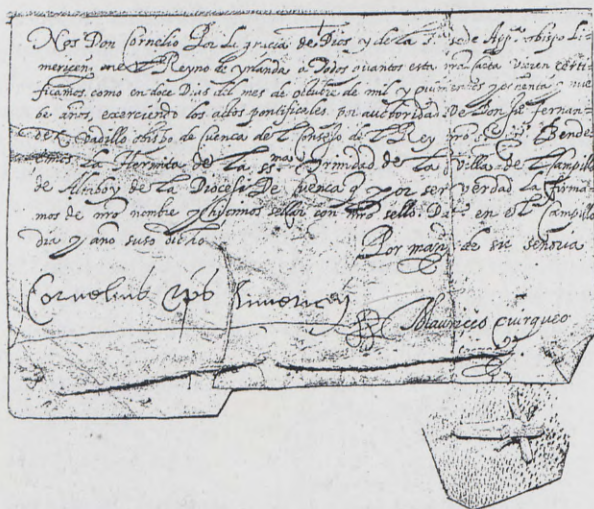 Nos Don Cornelio Por la gracia de Dios y de la S.ta sede App.ca obispo Li-
mericen en el Reyno de ynlanda a Todos quantos esta nra carta vieren certi-
ficamos como en doce Dias del mes de octubre de mil y quinientos y ochenta y nue-
be años, exerciendo los actos pontificales por auctoridad De Don Jo fernan-
dez Vadillo obispo de Cuenca del Consejo del Rey nro S.or Bende-
la Hermita de la ss.ma Trinidad de la Villa de Campillo
de Altoboy de la Diocesi De Cuenca y por ser verdad la firma-
mos de nro nombre y hicimos sellar con nro sello. Dat en el Campillo
dia y año suso dicho
Por man.do de su señoria
Cornelius eps Limericen
Mauricio